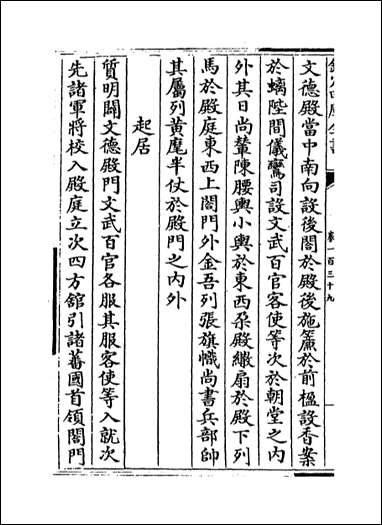 卷一百三十九
文德殿當中南向設後閤於殿後施簾於前楹設香案
於螭陛間儀鸞司設文武百官客使等次於朝堂之内
外其日尚輦陳腰輿小輿於東西朶殿繖扇於殿下列
馬於殿庭東西上閤門外金吾列張旗幟尚書兵部帥
其屬列黄麾半仗於殿門之内外
起居
質明闢文德殿門文武百官各服其服客使等入就次
先諸軍將校入殿庭立次四方舘引諸蕃國首領閤門